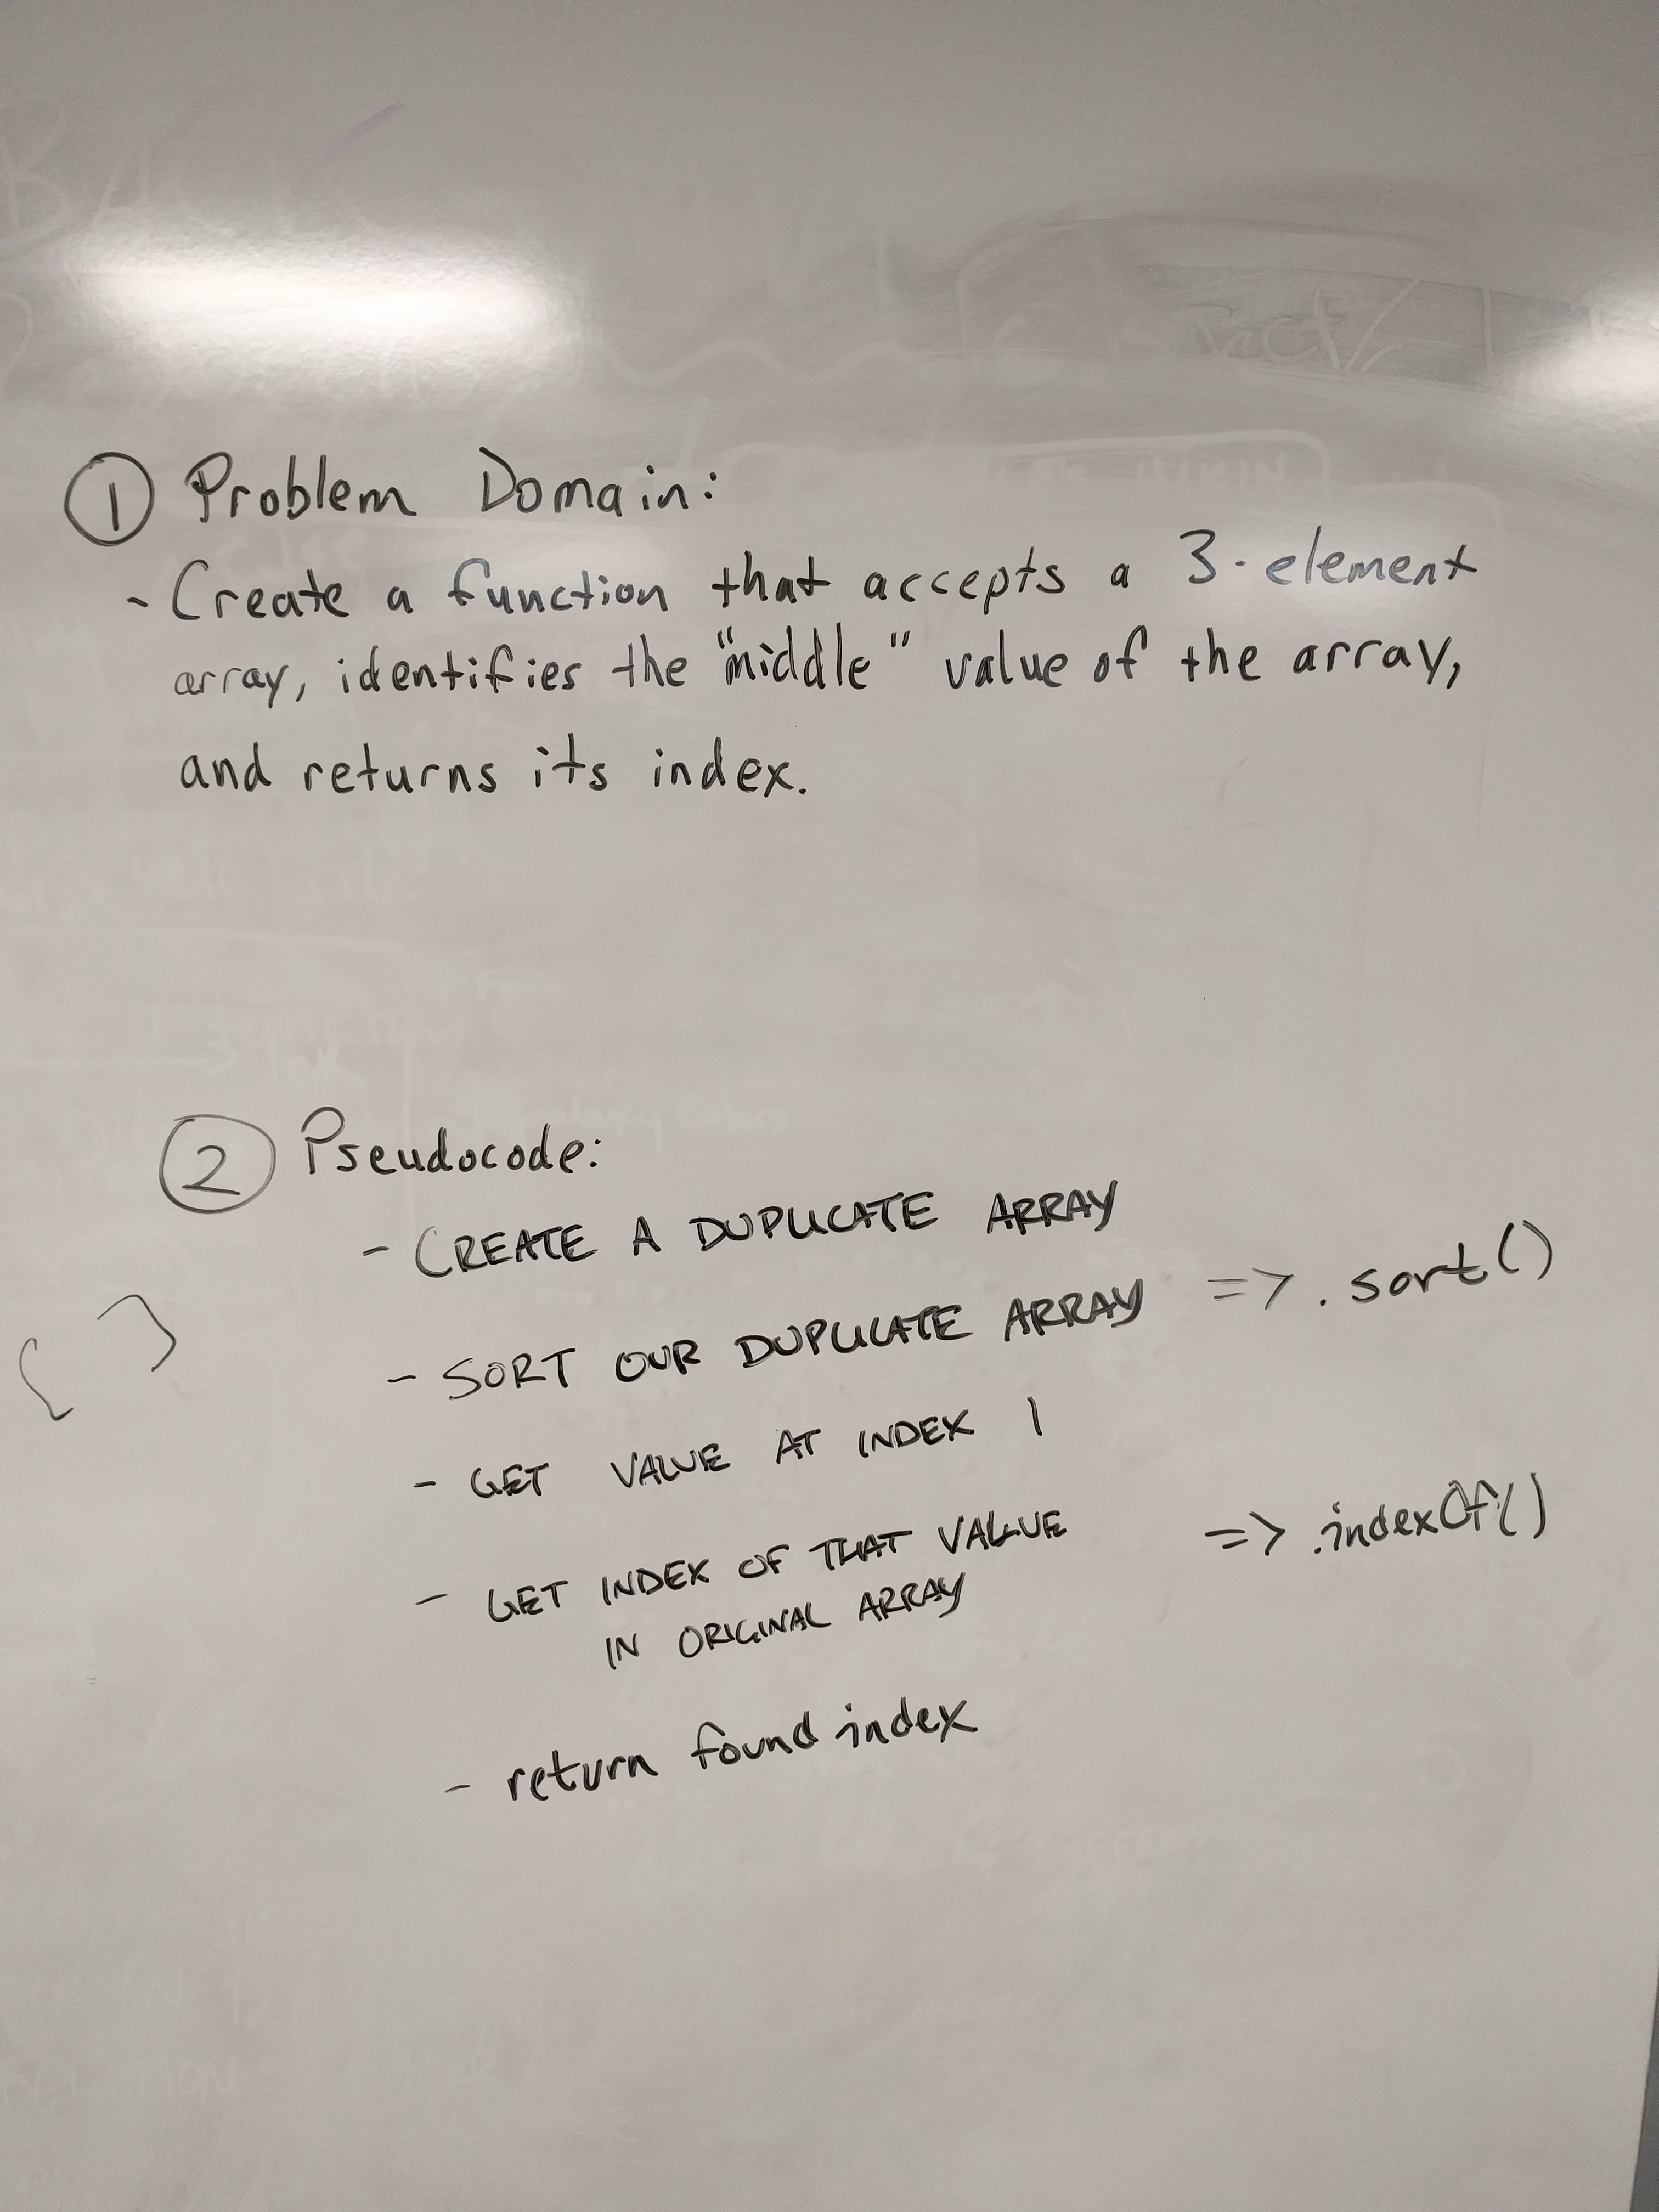 ① Problem Domain:
- Create a function that accepts a 3-element
array, identifies the "middle" value of the array,
and returns its index.
② Pseudocode:
- CREATE A DUPLICATE ARRAY
- SORT OUR DUPLICATE ARRAY => .sort()
[ ]
- GET VALUE AT INDEX 1
- GET INDEX OF THAT VALUE => .indexOf()
IN ORIGINAL ARRAY
- return found index